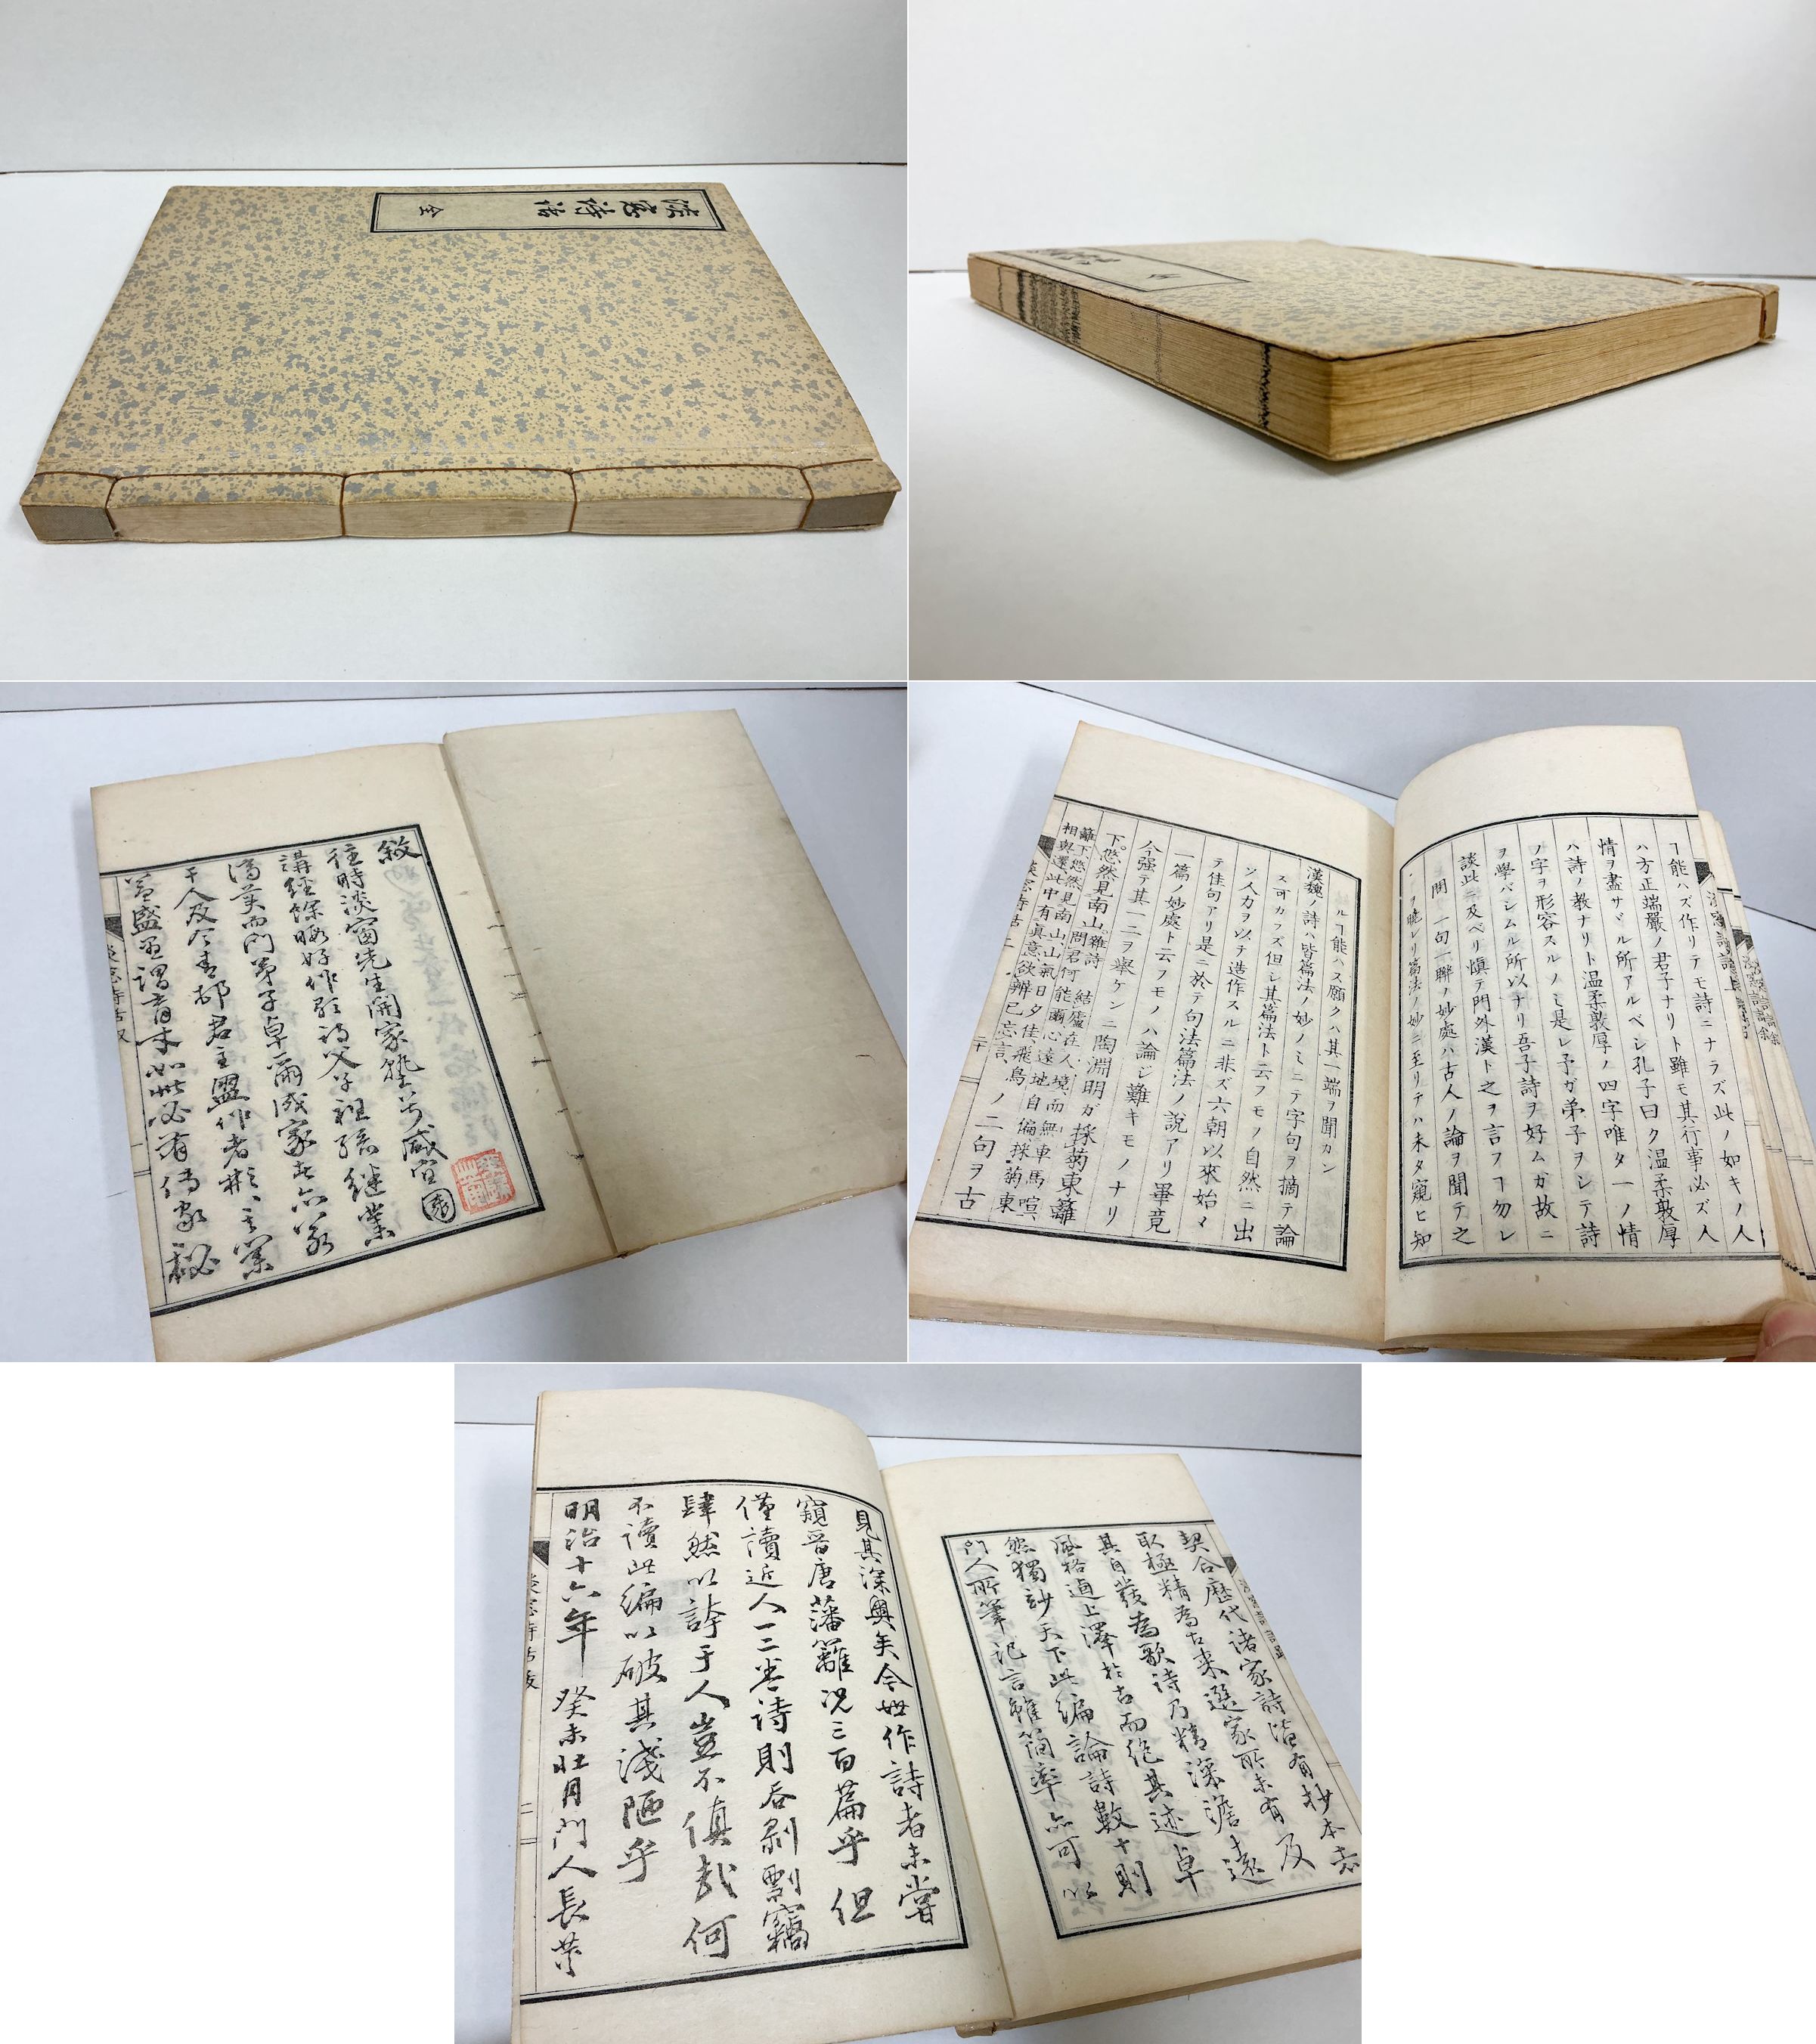 淡窓詩話 全
敘
往時淡窗先生開家塾於咸宜園
講經餘暇好作歌詩父子祖孫繼業
濟美而門弟子卓爾成家者亦不
千人及今青邨君主盟作者彬々其業
益盛
淡窓詩話
ヿ能ハズ作リテモ詩ニナラズ此ノ如キノ人
ハ方正端嚴ノ君子ナリト雖モ其行事必ズ人
情ヲ盡サヾル所アルベシ孔子曰ク温柔敦厚
ハ詩ノ教ナリト温柔敦厚ノ四字唯タ一ノ情
ノ字ヲ形容スルノミ是レ予ガ弟子ヲシテ詩
ヲ學バシムル所以ナリ吾子詩ヲ好ムガ故ニ
談此ニ及ベリ愼テ門外漢ト之ヲ言フヿ勿レ
問 一句一聯ノ妙處ハ古人ノ論ヲ聞テ之
ヲ曉レリ篇法ノ妙ニ至リテハ未タ窺ヒ知
ルヿ能ハス願クハ其一端ヲ聞カン
漢魏ノ詩ハ皆篇法ノ妙ノミニテ字句ヲ摘テ論
ス可カラズ但シ其篇法ト云フモノ自然ニ出
ツ人力ヲ以テ造作スルニ非ズ六朝以來始メ
テ佳句アリ是ニ於テ句法篇法ノ説アリ畢竟
一篇ノ妙處ト云フモノハ論ジ難キモノナリ
今强テ其一二ヲ舉ケンニ陶淵明ガ採菊東籬
下。悠然見南山。雜詩 結廬在人境、而無車馬喧、
問君何能爾、心遠地自偏、採菊東
籬下、悠然見南山、山氣日夕佳、飛鳥
相與還、此中有眞意、欲辨已忘言、ノ二句ヲ古
淡窓詩話
契合歷代諸家詩皆有抄本去
取極精爲古來選家所未有及
其自發爲歌詩乃精深澹遠
風格遒上澤於古而絶其迹卓
然獨妙天下此編論詩數十則
門人所筆記言雖簡率亦可以
見其深奧矣今世作詩者未嘗
窺晉唐藩籬況三百篇乎但
僅讀近人一二卷詩則吞剥剽竊
肆然以誇于人豈不傎哉何
不讀此編以破其淺陋乎
明治十六年 癸未壯月門人長炗
淡窓詩話跋